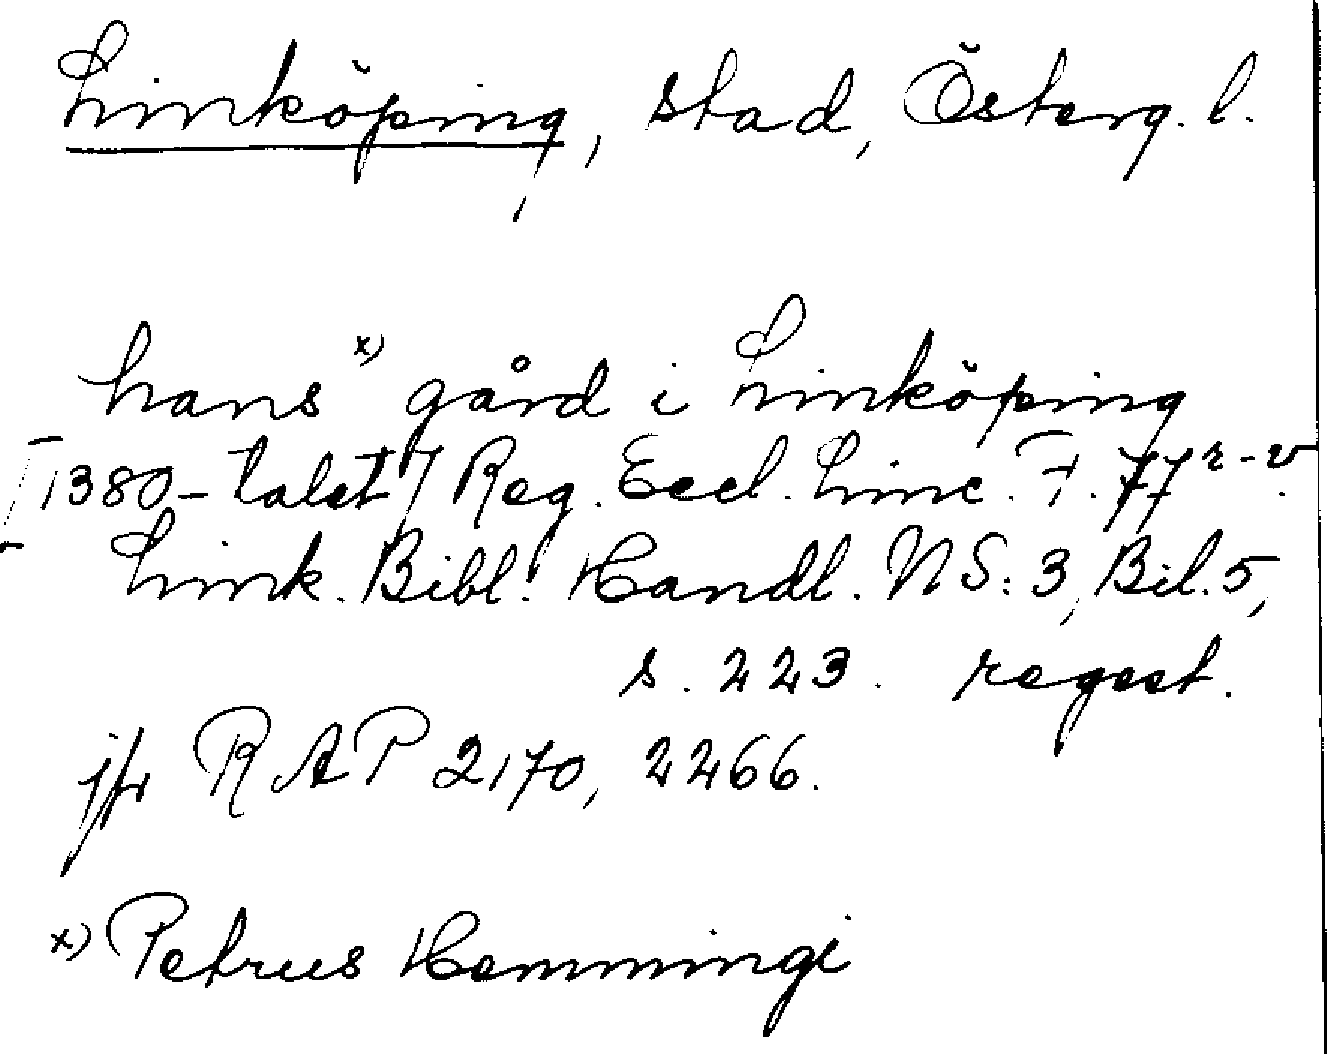 Linköping, stad, Österg. l.
hans x) gård i Linköping
[1380-talet] Reg. Eccl. Linc. F. 77 r-v.
Link. Bibl. Handl. NS: 3, Bil. 5,
s. 223. regest.
jfr RAP 2170, 2266.
x) Petrus Hemmingi